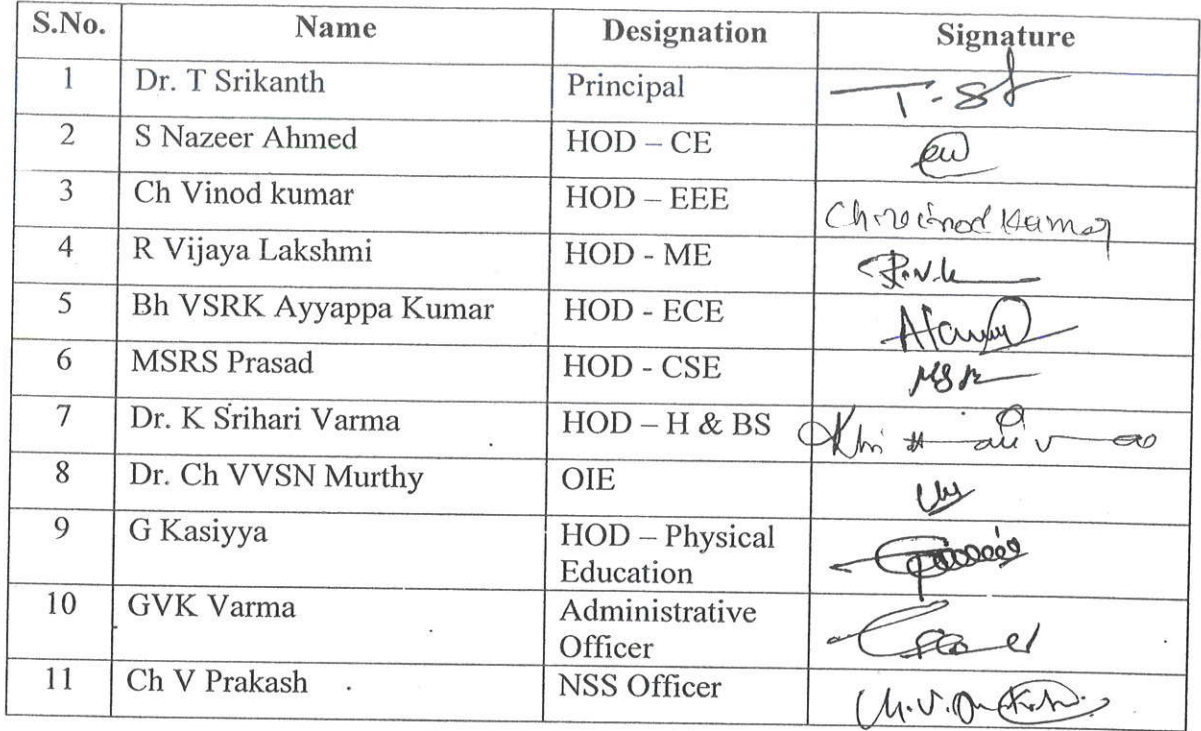 S.No. Name Designation Signature
1 Dr. T Srikanth Principal T-S
2 S Nazeer Ahmed HOD – CE
3 Ch Vinod kumar HOD – EEE Ch. Vinod Kumar
4 R Vijaya Lakshmi HOD - ME
5 Bh VSRK Ayyappa Kumar HOD - ECE
6 MSRS Prasad HOD - CSE
7 Dr. K Srihari Varma HOD – H & BS
8 Dr. Ch VVSN Murthy OIE
9 G Kasiyya HOD – Physical
Education
10 GVK Varma Administrative
Officer
11 Ch V Prakash NSS Officer